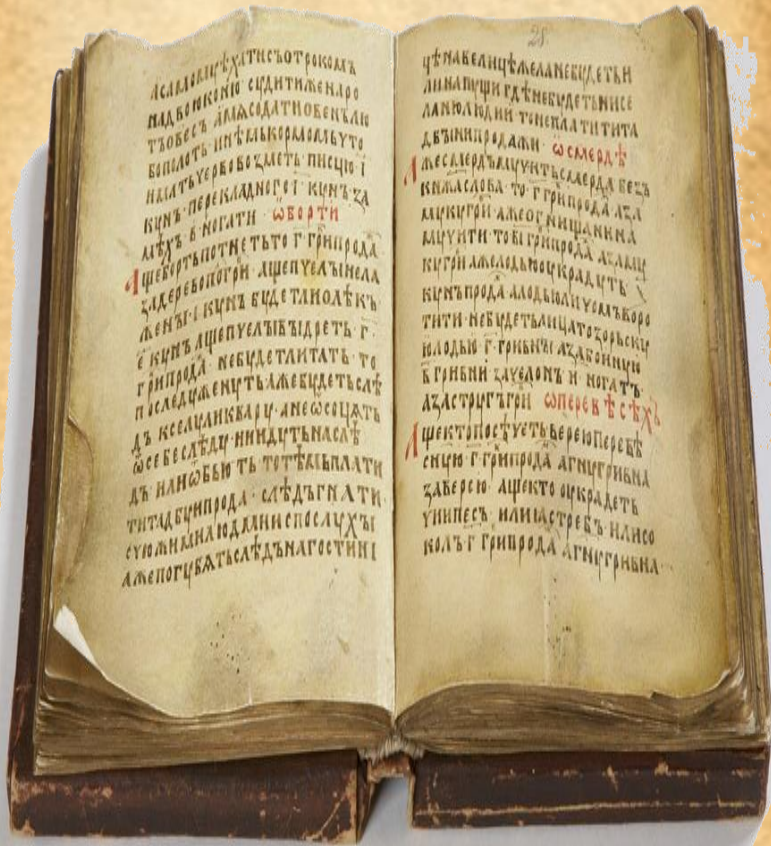 асамомꙋѣхатисъотрокомъ
надвоюконю сꙋдитиженаро
тъовесъ амѧсодатиовенълю
бополоть инѣмькормомьꙋто
имать черѣвовъзметь писцю·і·
кꙋнъ·перекладного·і·кꙋнъза
мѣхъ·в·ногати· ѡборти
Ашебортьпотнетьто·г·грипрода
задеревополъгри ашепчелывела
жены·і·кꙋнъбꙋдетлиолѣкъ
·е·кꙋнъашепчелывыдреть·г·
грипрода·небꙋдетлитать·то
последꙋженꙋтьажебꙋдетьслѣ
дъкселꙋликваꙋ·анеѡсоцѧть
ѡсебеслѣдꙋ·ниидꙋтьнаслѣ
дъ·илиѡбьютьтотѣмьплати
титадбꙋипрода·слѣдъгнати
сꙋюжимилюдмииспослꙋхы
ажепогꙋбѧтьслѣдънагостини
28
цѣнавелицѣжеланебꙋдетьни
линапꙋщигдѣнебꙋдетьнисе
ланюлюдии·тонеплатитита
двыинпродажи· ѡсмердѣ
Ажесмердъмꙋчитьсмердабезъ
кнжаслова·то·г·грипродааза
мꙋкꙋгри·ажеогнищанина
мꙋчити·то·ві·грипродаазамꙋ
кꙋгриажелодьюꙋкрадꙋть
кꙋнъпрода·алодьюлицемъворо
тити·небꙋдетьлицатозорьскꙋ
юлодью·г·гривныазабоиную
·в·гривнизачелонъ·и·ногатъ
азастрꙋгъгри ѡперевѣсѣхъ
Ащектопосѣчетьвереюперевѣ
сную·г·грипродаагнꙋгривна
заверею·ащектоꙋкрадеть
чиипесъ·илиястребъ·илисо
колъ·г·грипродаагнꙋгривна